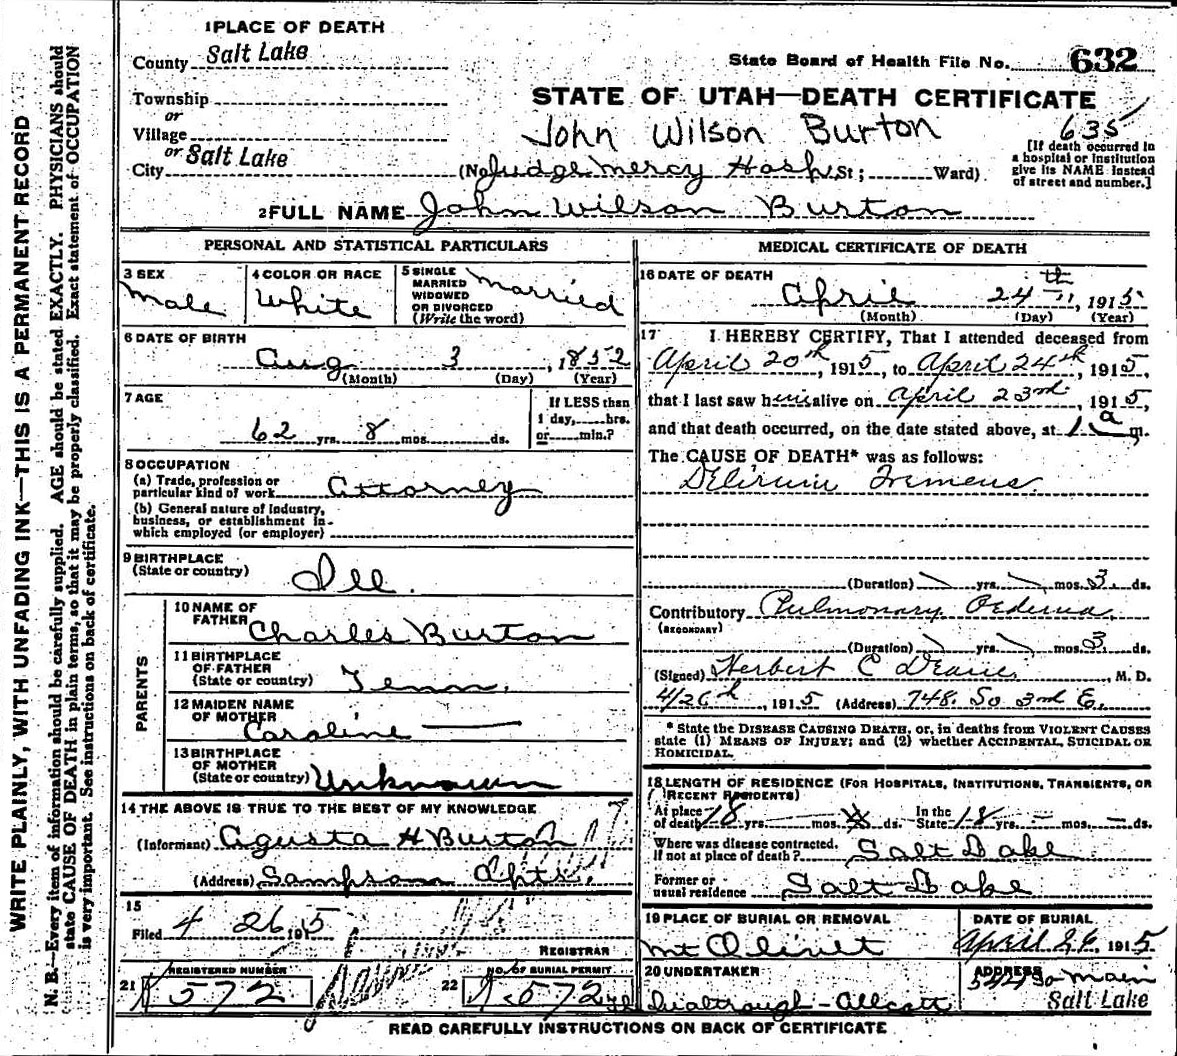 WRITE PLAINLY, WITH UNFADING INK—THIS IS A PERMANENT RECORD
N. B.—Every item of information should be carefully supplied. AGE should be stated EXACTLY. PHYSICIANS should
state CAUSE OF DEATH in plain terms, so that it may be properly classified. Exact statement of OCCUPATION
is very important. See instructions on back of certificate.
1 PLACE OF DEATH
County Salt Lake
State Board of Health File No. 632
Township
or
Village
or
City Salt Lake
STATE OF UTAH—DEATH CERTIFICATE
John Wilson Burton
635
[If death occurred in
a hospital or institution
give its NAME instead
of street and number.]
(No Judge Mercy Hosp. St; Ward)
2 FULL NAME John Wilson Burton
PERSONAL AND STATISTICAL PARTICULARS
3 SEX
Male
4 COLOR OR RACE
White
5 SINGLE
MARRIED
WIDOWED
OR DIVORCED
(Write the word)
Married
6 DATE OF BIRTH
Aug 3, 1852
(Month) (Day) (Year)
7 AGE
62 yrs. 8 mos. ds.
If LESS than
1 day, hrs.
or min.?
8 OCCUPATION
(a) Trade, profession or
particular kind of work Attorney
(b) General nature of Industry,
business, or establishment in
which employed (or employer)
9 BIRTHPLACE
(State or country)
Ill.
PARENTS
10 NAME OF
FATHER Charles Burton
11 BIRTHPLACE
OF FATHER
(State or country) Tenn.
12 MAIDEN NAME
OF MOTHER
Caroline
13 BIRTHPLACE
OF MOTHER
(State or country) Unknown
14 THE ABOVE IS TRUE TO THE BEST OF MY KNOWLEDGE
(Informant) Agusta H Burton
(Address) Sampson Apts.
15
Filed 4 26 1915
REGISTRAR
REGISTERED NUMBER
21 572
NO. OF BURIAL PERMIT
22 572
MEDICAL CERTIFICATE OF DEATH
16 DATE OF DEATH
April 24th, 1915
(Month) (Day) (Year)
17 I HEREBY CERTIFY, That I attended deceased from
April 20th, 1915, to April 24th, 1915,
that I last saw him alive on April 23rd, 1915,
and that death occurred, on the date stated above, at 1 a m.
The CAUSE OF DEATH* was as follows:
Delirium Tremens.
(Duration) yrs. mos. 3 ds.
Contributory Pulmonary Oedema
(SECONDARY)
(Duration) yrs. mos. 3 ds.
(Signed) Herbert C Deane, M. D.
4/26th, 1915 (Address) 748 So 3rd E.
* State the DISEASE CAUSING DEATH, or, in deaths from VIOLENT CAUSES
state (1) MEANS OF INJURY; and (2) whether ACCIDENTAL, SUICIDAL OR
HOMICIDAL.
18 LENGTH OF RESIDENCE (FOR HOSPITALS, INSTITUTIONS, TRANSIENTS, OR
RECENT RESIDENTS)
At place
of death 18 yrs. mos. ds. In the
State 18 yrs. mos. ds.
Where was disease contracted.
If not at place of death? Salt Lake
Former or
usual residence Salt Lake
19 PLACE OF BURIAL OR REMOVAL
Mt Olivet
DATE OF BURIAL
April 26, 1915
20 UNDERTAKER
ADDRESS
544 So Main
Salt Lake
READ CAREFULLY INSTRUCTIONS ON BACK OF CERTIFICATE